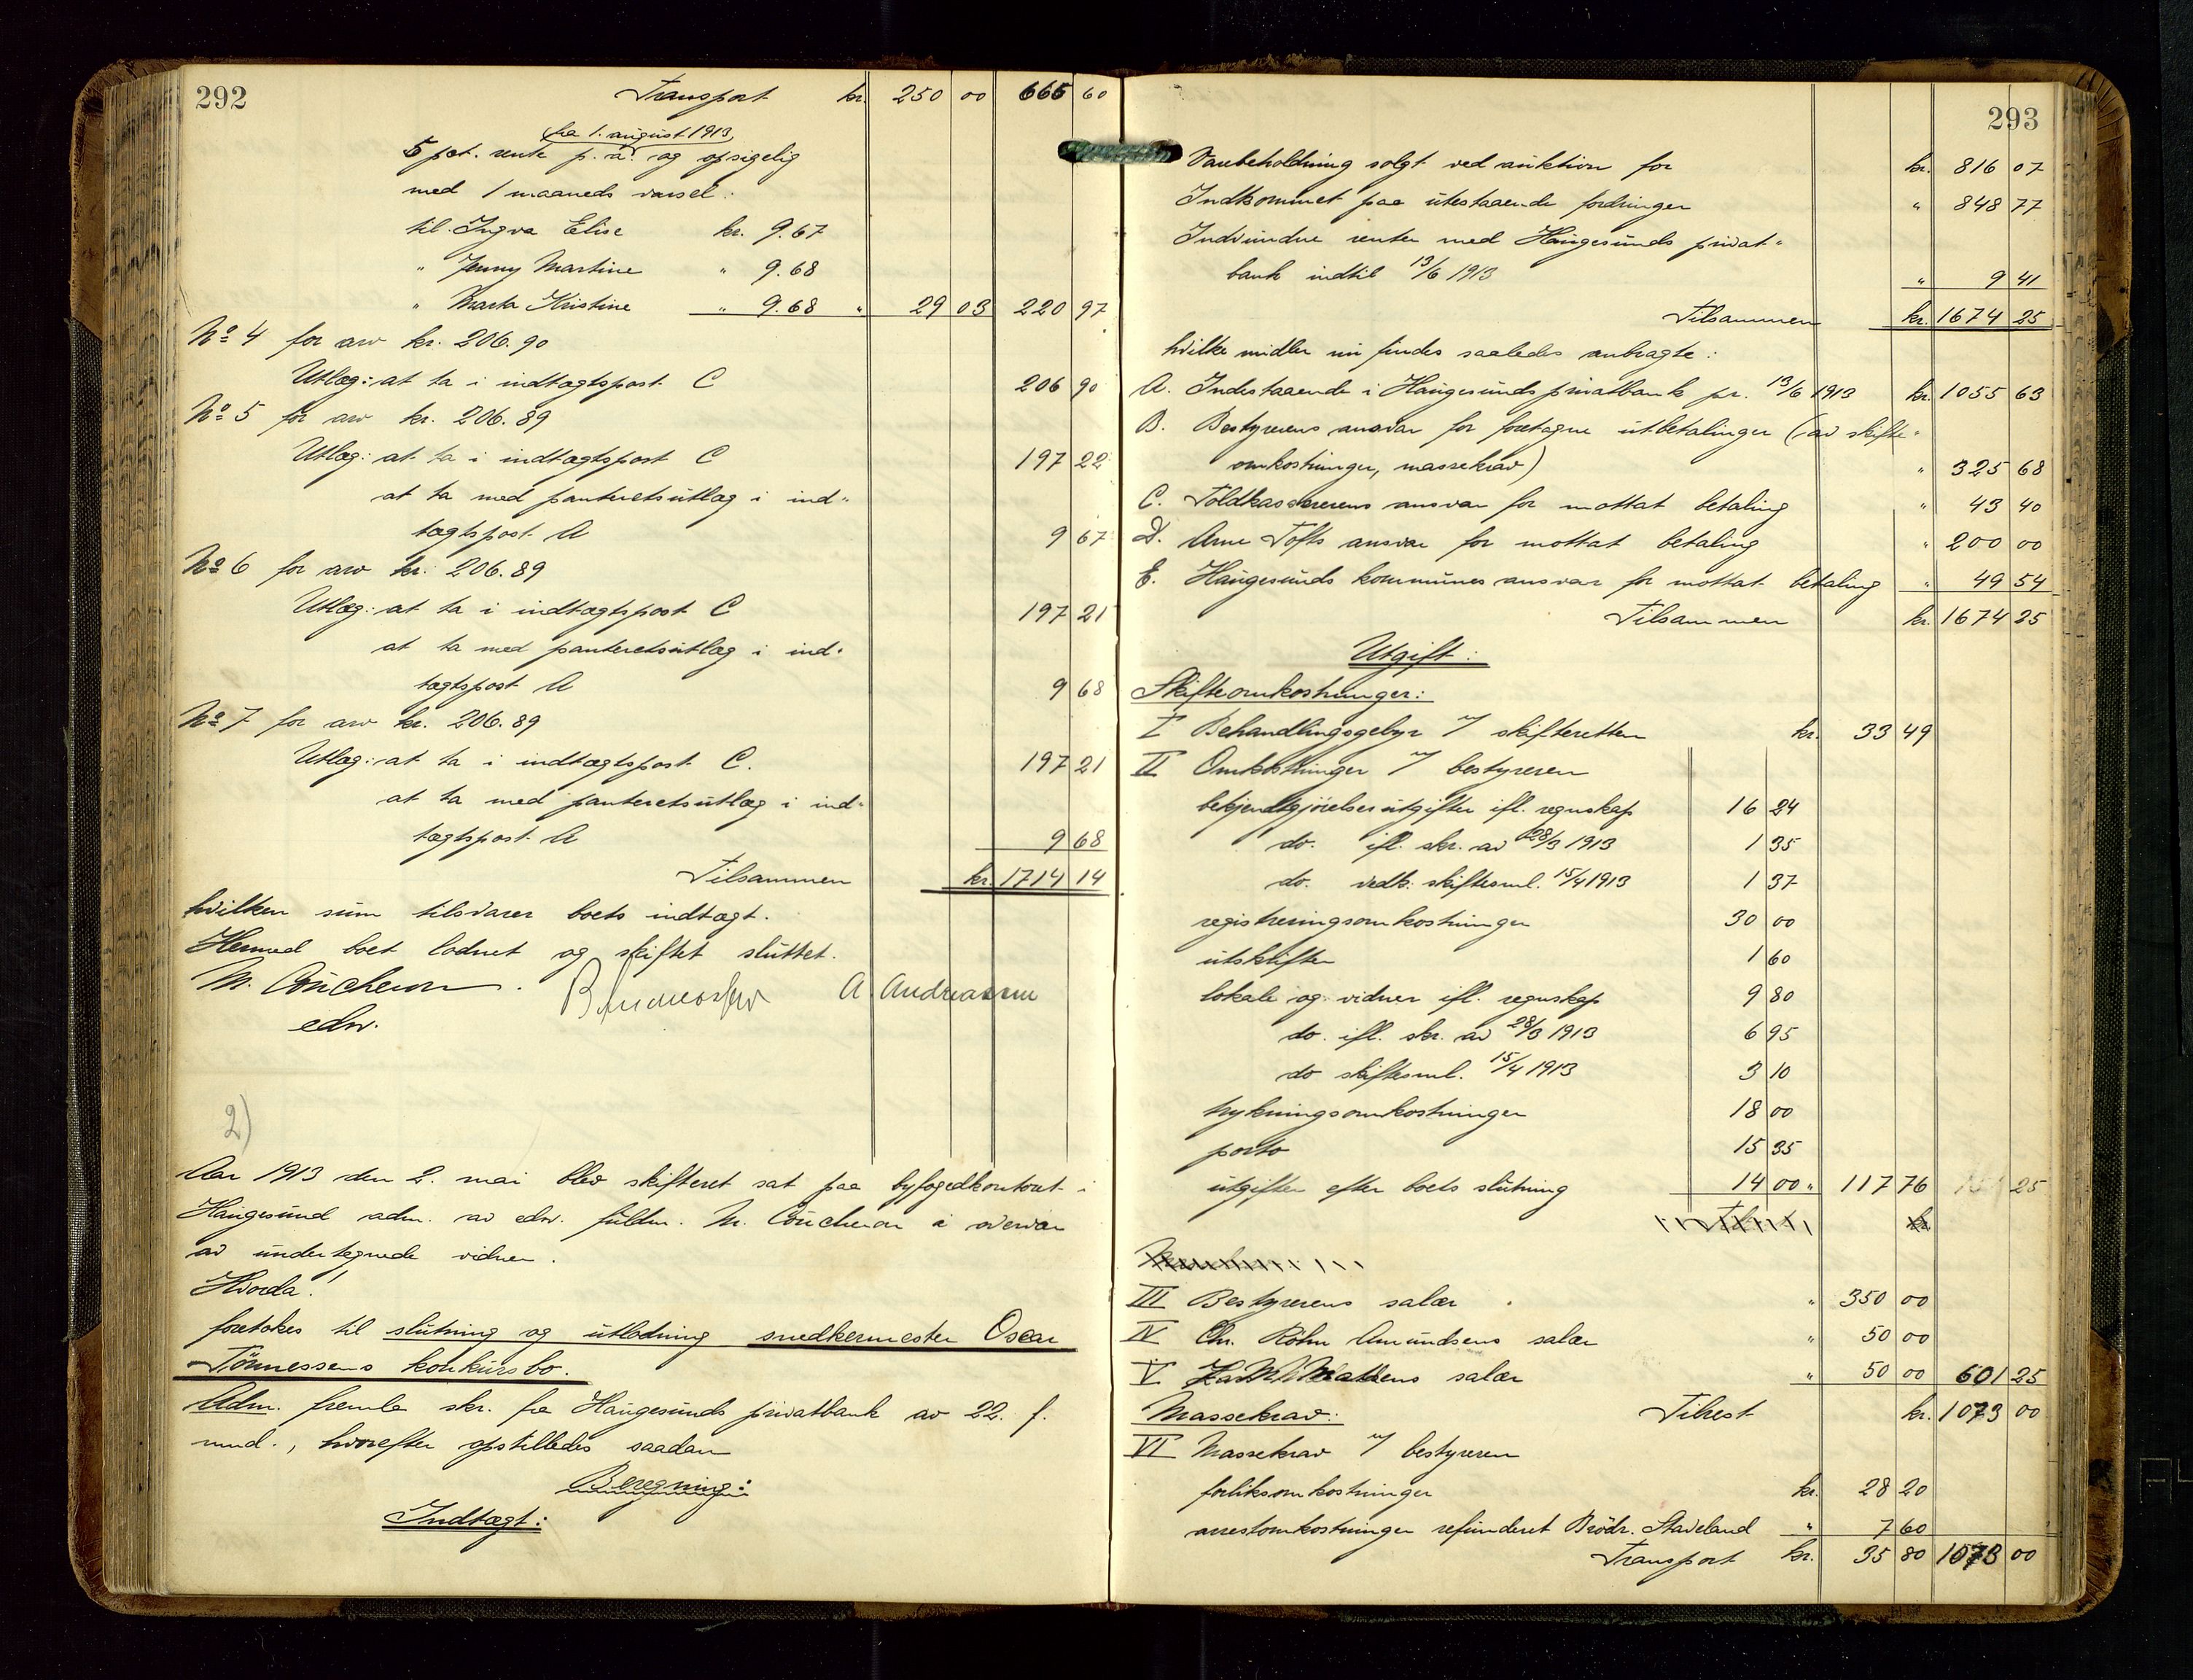 292
Transport kr. 250 00 666 60
fra 1. august 1913,
5 pct. rente p. a. og opsigelig
med 1 maaneds varsel:
til Ingva Elise kr. 9.67
" Jenny Martine " 9.68
" Marta Kristine " 9.68 " 29 03 220 97
No 4 for arv kr. 206.90
Utlæg: at ta i indtægtspost C 206 90
No 5 for arv kr. 206.89
Utlæg: at ta i indtægtspost C 197 22
at ta med panteretsutlæg i ind-
tægtspost A 9 67
No 6 for arv kr. 206.89
Utlæg: at ta i indtægtspost C 197 21
at ta med panteretsutlæg i ind-
tægtspost A 9 68
No 7 for arv kr. 206.89
Utlæg: at ta i indtægtspost C. 197 21
at ta med panteretsutlæg i ind-
tægtspost A 9 68
Tilsammen kr. 1714 14
hvilken sum tilsvarer boets indtægt.
Hermed boet lodnet og skiftet sluttet.
M. Coucheron. A. Andreassen
edsv.
2)
Aar 1913 den 2. mai blev skifteret sat paa byfogedkontoret i
Haugesund adm. av edsv. fuldm. M. Coucheron i overvær
av undertegnede vidner.
Hvorda!
foretokes til slutning og utlodning snedkermester Oscar
Tönnessens konkursbo.
Adm. fremla skr. fra Haugesunds privatbank av 22. f.
mnd., hvorefter opstilledes saadan
Beregning:
Indtægt:
293
Varebeholdning solgt ved auktion for kr. 816 07
Indkommet paa utestaaende fordringer " 848 77
Indvundne renter med Haugesunds privat-
bank indtil 13/6 1913 " 9 41
Tilsammen kr. 1674 25
hvilke midler nu findes saaledes anbragte:
A. Indestaaende i Haugesunds privatbank pr. 13/6 1913 kr. 1055 63
B. Bestyrerens ansvar for foretagne utbetalinger (av skifte-
omkostninger, massekrav) " 325 68
C. Toldkassererens ansvar for mottat betaling " 43 40
D. Arne Tofts ansvar for mottat betaling " 200 00
E. Haugesunds kommunes ansvar for mottat betaling " 49 54
Tilsammen kr. 1674 25
Utgift:
Skifteomkostninger:
I Behandlingsgebyr t/ skifteretten kr. 33 49
II Omkostninger t/ bestyreren
bekjendtgjörelsesutgifter ifl. regnskap 16 24
do. ifl. skr. av 28/3 1913 1 35
do. vedk. skiftesml. 15/4 1913 1 37
registreringsomkostninger 30 00
utskrifter 1 60
lokale og vidner ifl. regnskap 9 80
do. ifl. skr. av 28/3 1913 6 95
do skiftesml. 15/4 1913 3 10
trykningsomkostninger 18 00
porto 15 35
utgifter efter boets slutning 14 00 " 117 76
III Bestyrerens salær " 350 00
IV Chr. Röhn Amundsens salær " 50 00
V salær " 50 00 601 25
Massekrav: Tilrest kr. 1073 00
VI Massekrav t/ bestyreren
forliksomkostninger kr. 28 20
arrestomkostninger refunderet Brödr. Staveland " 7 60
Transport kr. 35 80 1073 00